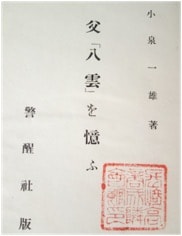 小泉一雄著
父「八雲」を憶ふ
警醒社版